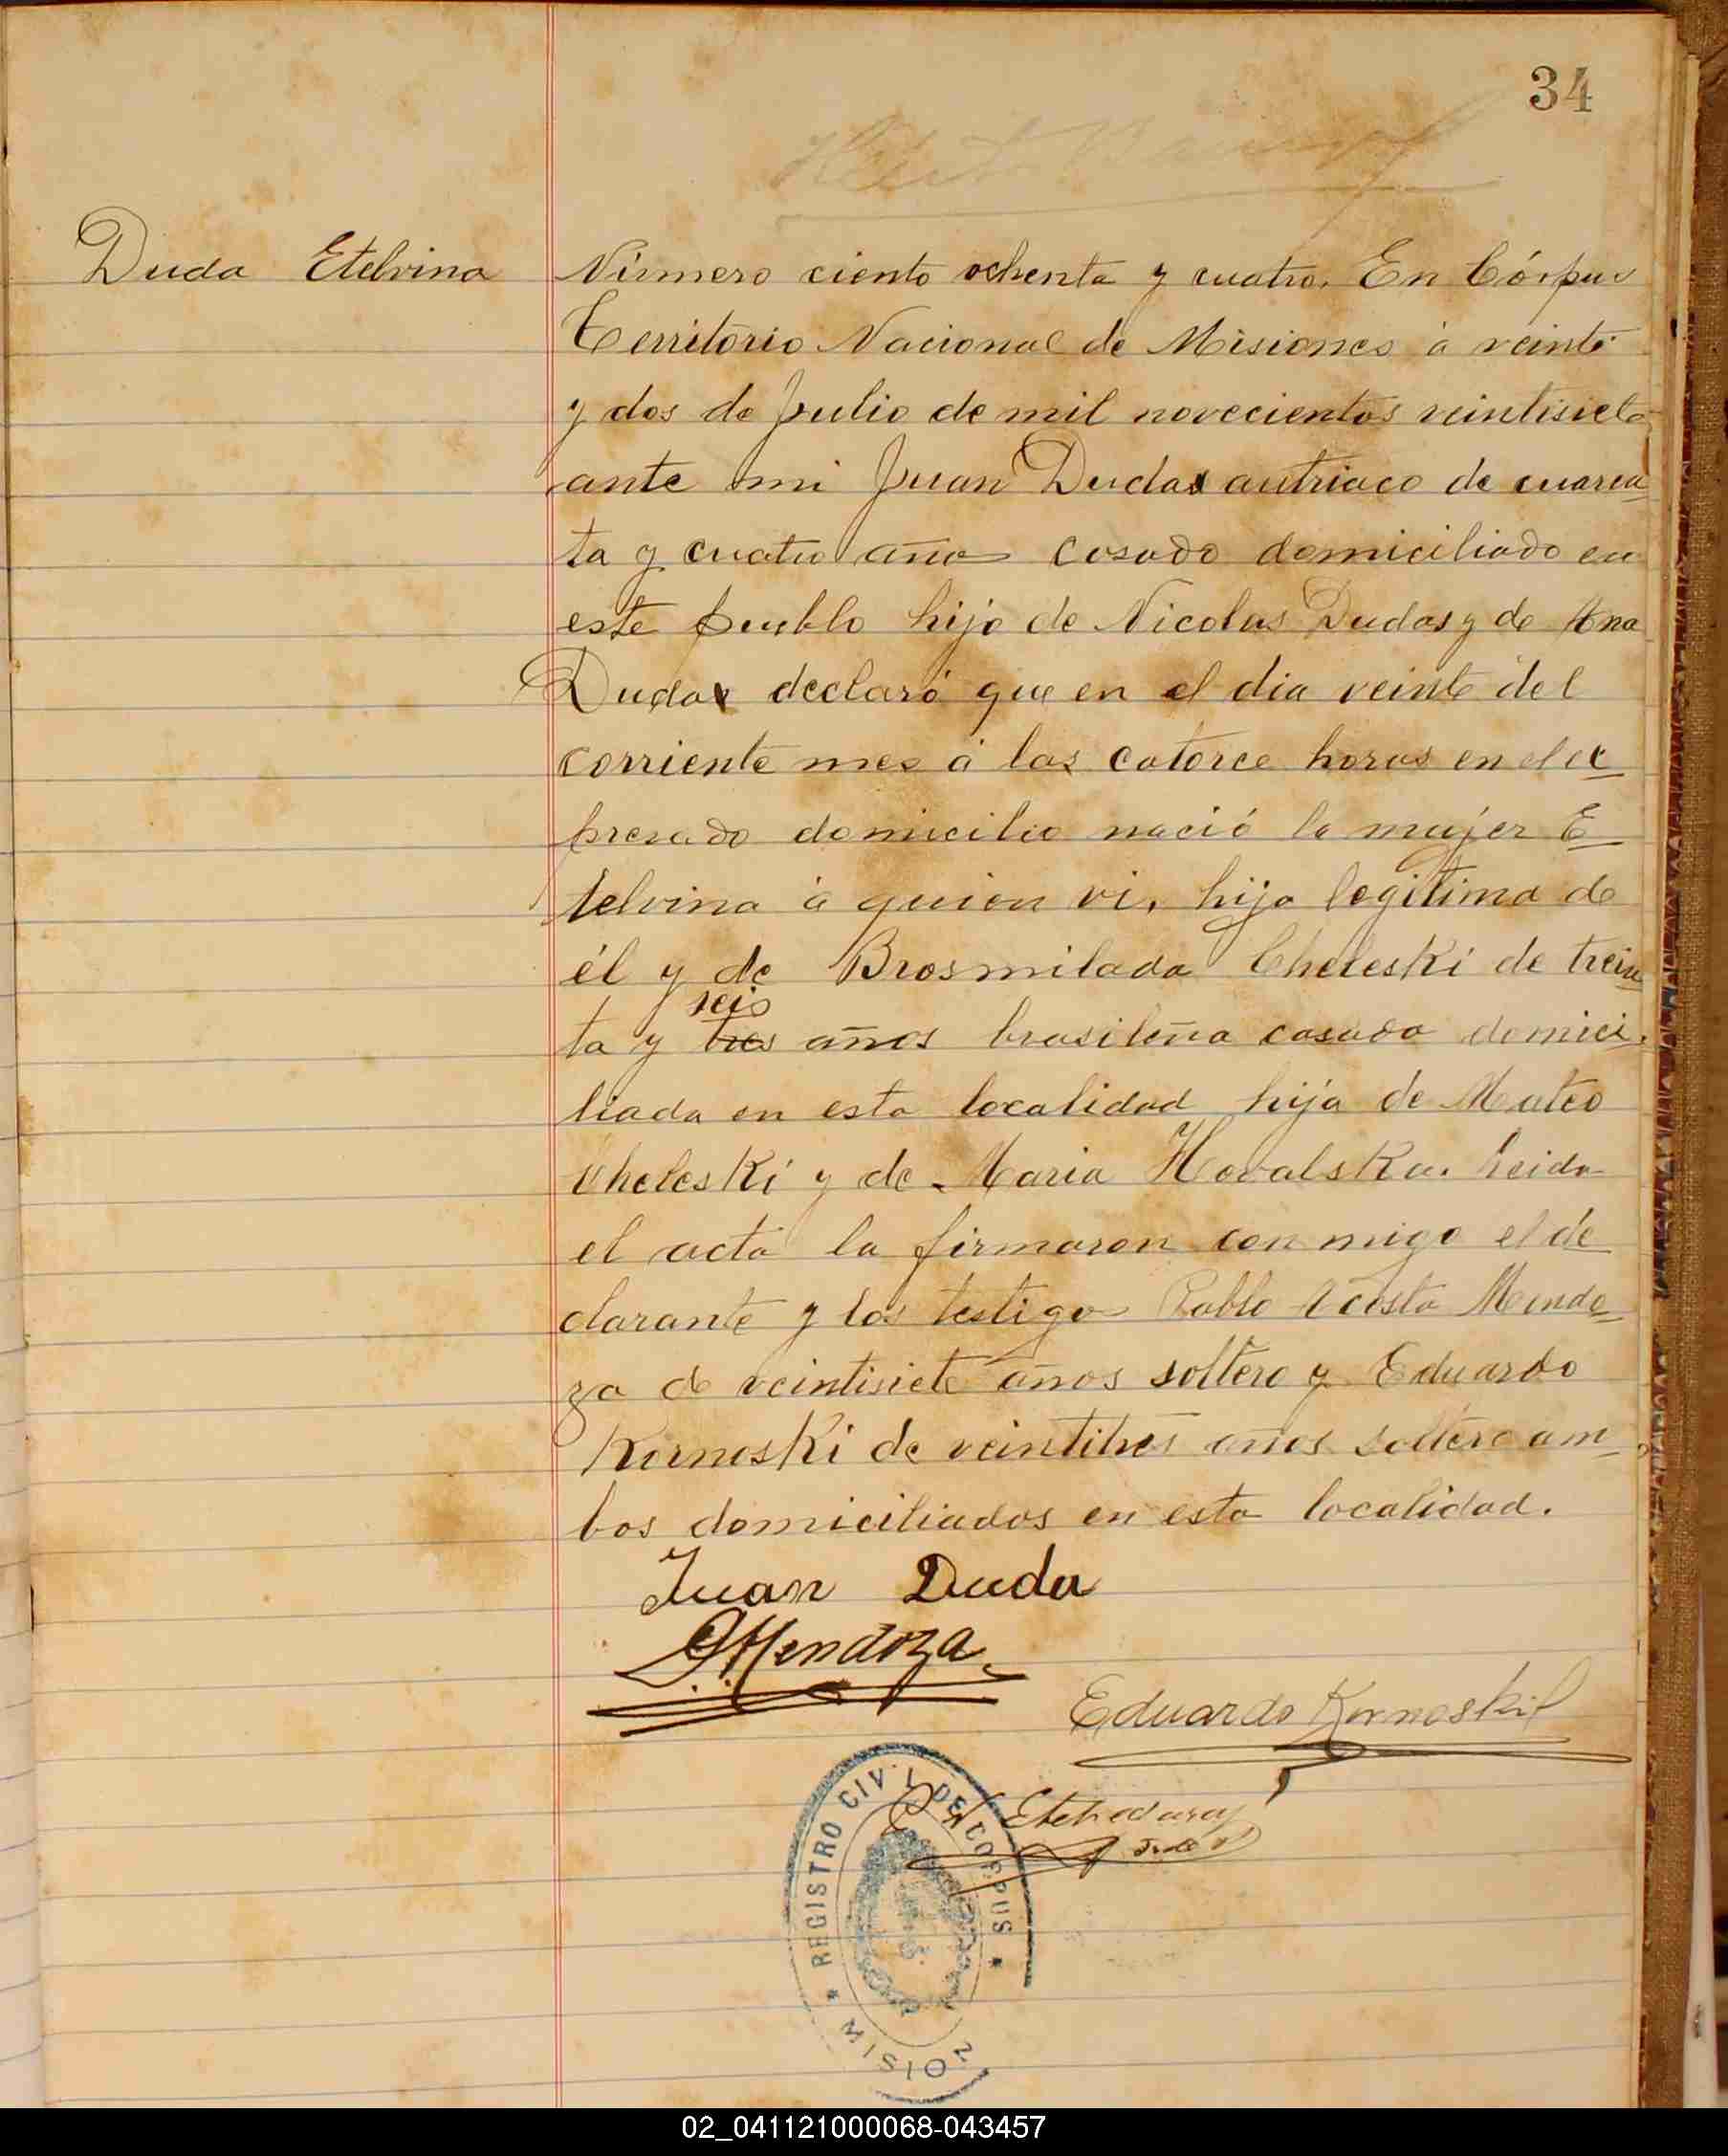 34
Duda Etelvina
Número ciento ochenta y cuatro. En Córpus
Territorio Nacional de Misiones á veinte
y dos de Julio de mil novecientos veintisiete
ante mi Juan Duda autriaco de cuaren
ta y cuatro años casado domiciliado en
este pueblo hijo de Nicolas Dudas y de Ana
Duda declaró que en el dia veinte del
corriente mes á las catorce horas en el ex
presado domicilio nació la mujer E
telvina á quien vi, hija legitima de
él y de Brosmilada Cheleski de trein
seis
ta y tres años brasileña casada domici
liada en esta localidad hija de Mateo
Cheleski y de Maria Kovalska. Leida
el acta la firmaron con migo el de
clarante y los testigos Pablo Acosta Mendo
za de veintisiete años soltero y Eduardo
Kornoski de veintitres años soltero am
bos domiciliados en esta localidad.
Juan Duda
Mendoza
Eduardo Kornoski
REGISTRO CIVIL DE CORPUS
MISION
02_041121000068-043457